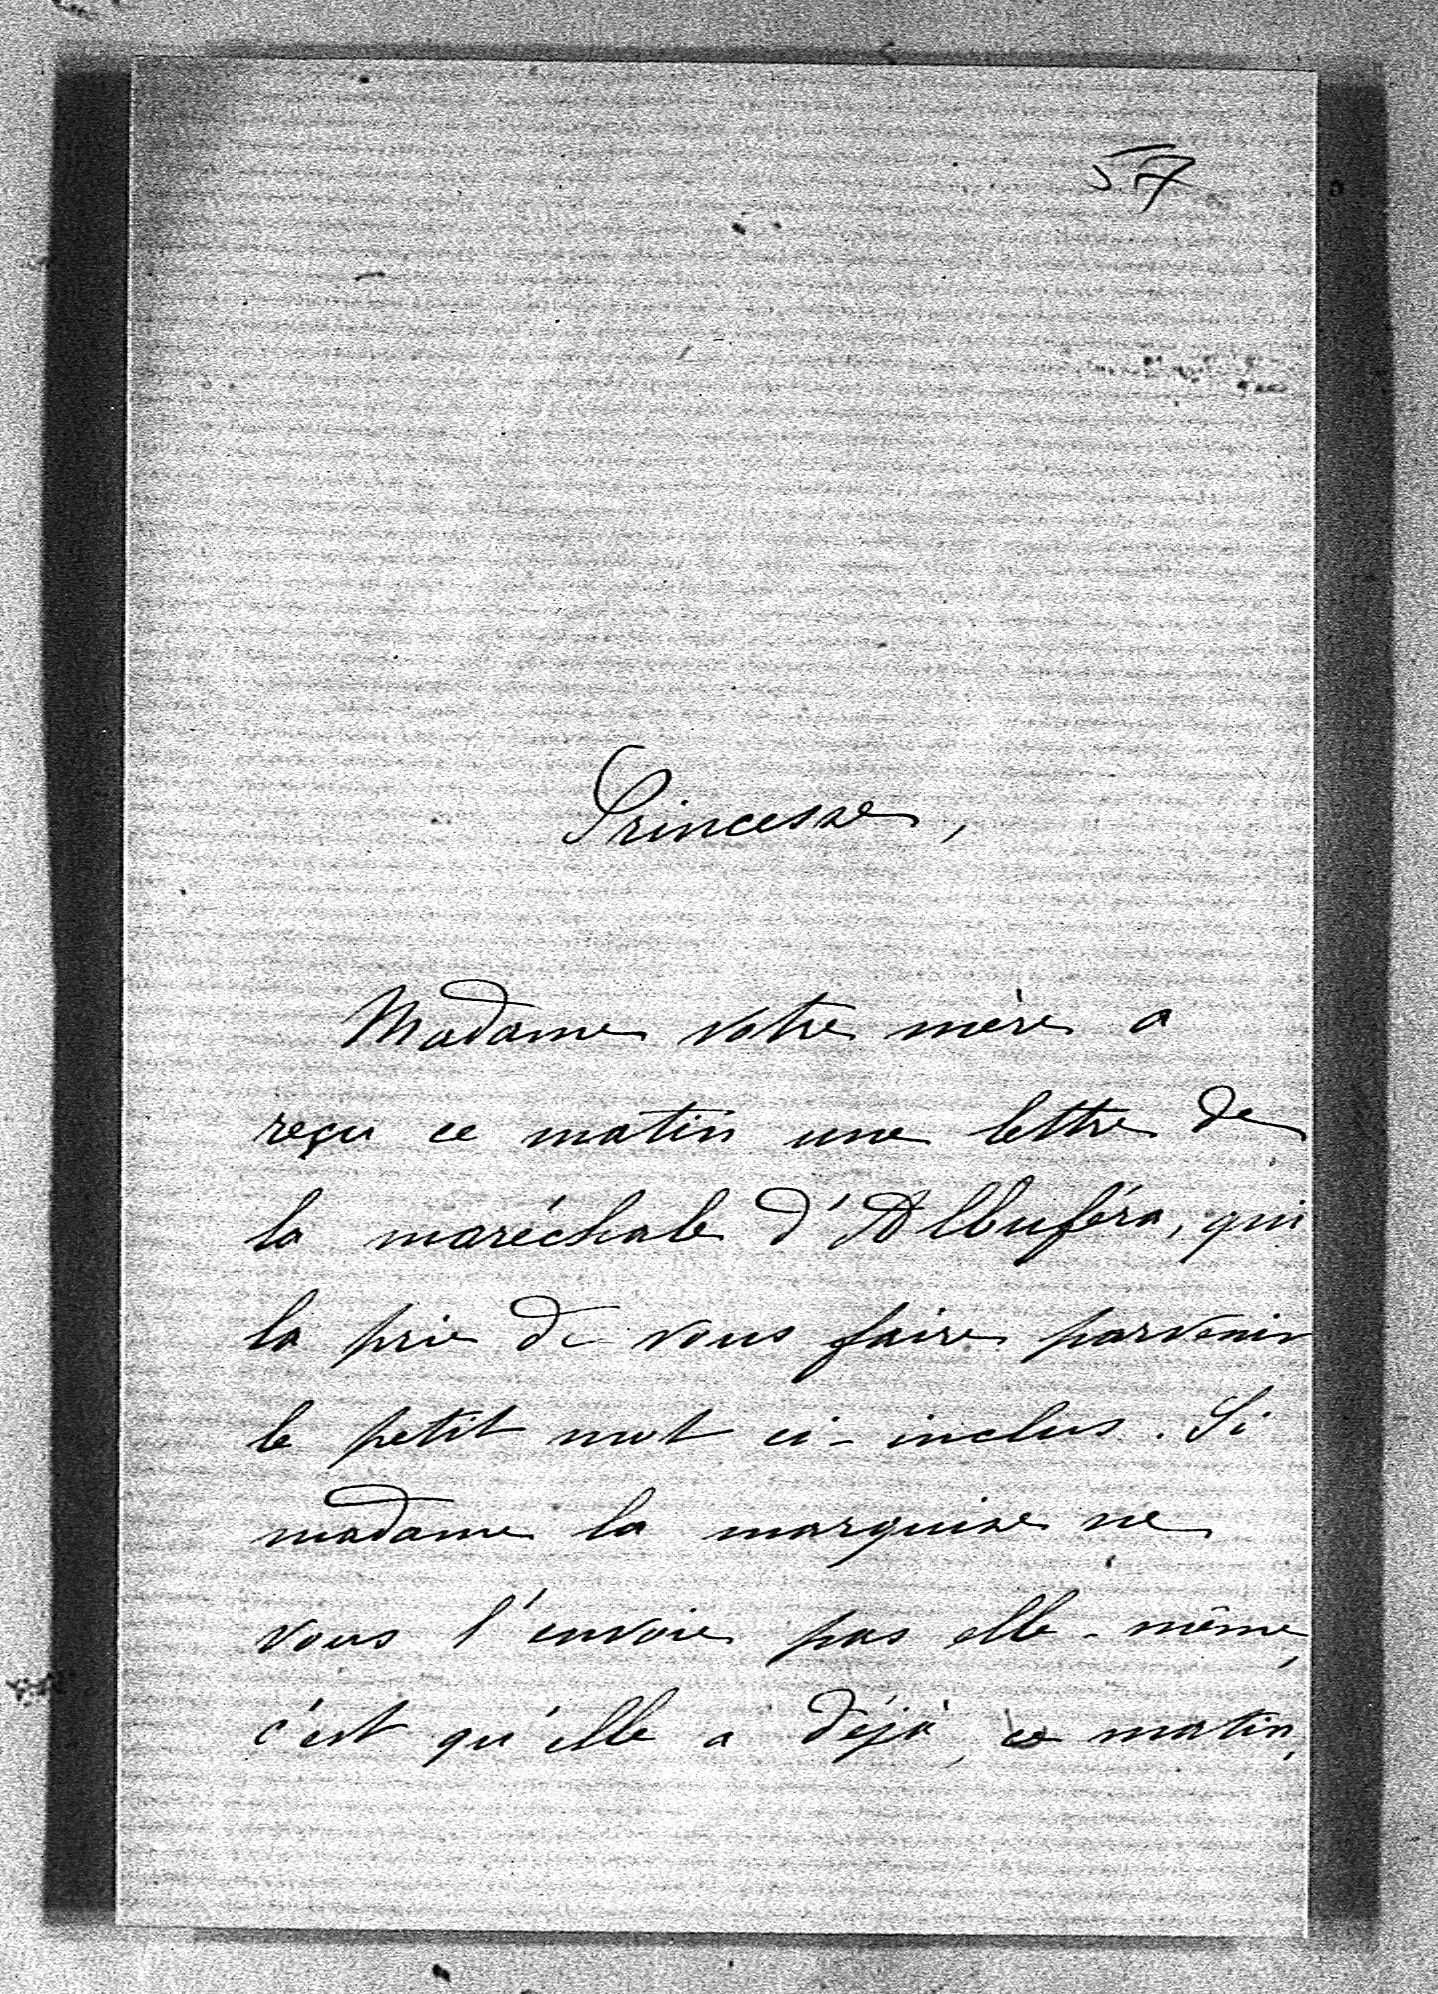 57
Princesse,
Madame votre mère a
reçu ce matin une lettre de
la maréchale d'Albuféra, qui
la prie de vous faire parvenir
le petit mot ci-inclus. Si
madame la marquise ne
vous l'envoie pas elle-même,
c'est qu'elle a déjà, ce matin,